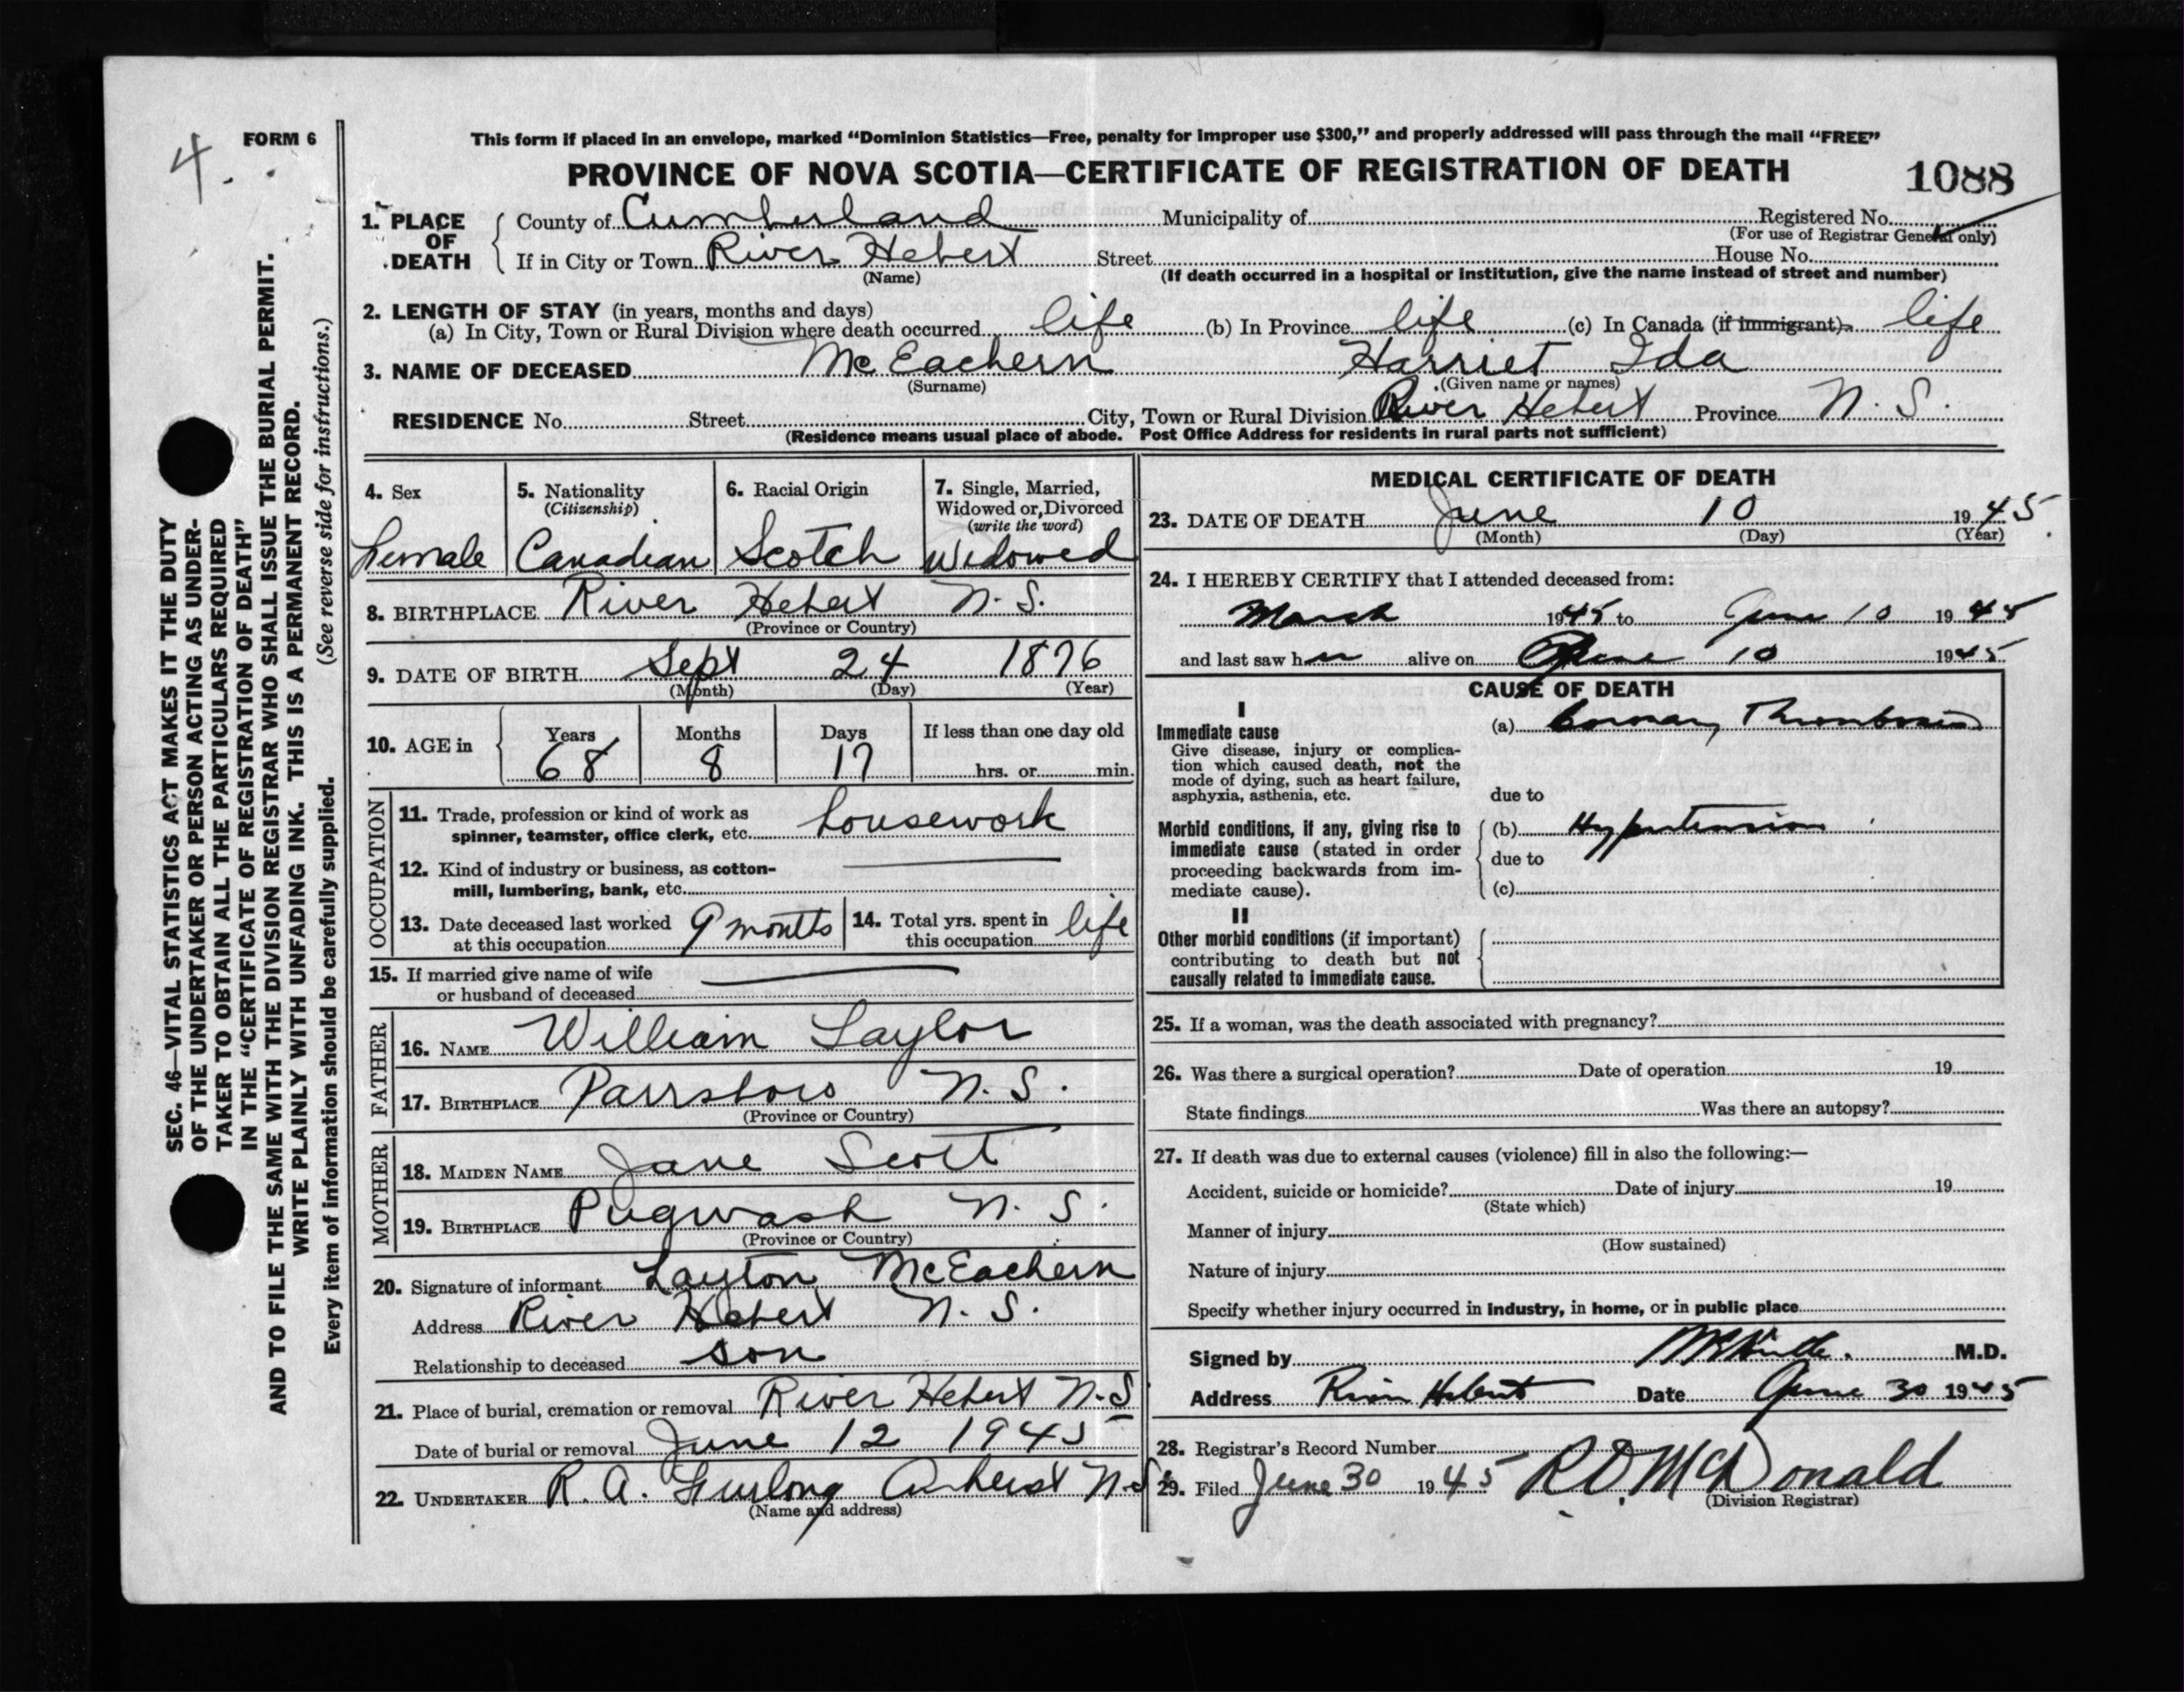 4.
FORM 6
This form if placed in an envelope, marked “Dominion Statistics—Free, penalty for improper use $300,” and properly addressed will pass through the mail “FREE”
PROVINCE OF NOVA SCOTIA—CERTIFICATE OF REGISTRATION OF DEATH
1088
1. PLACE OF DEATH
County of Cumberland Municipality of Registered No.
(For use of Registrar General only)
If in City or Town River Hebert Street House No.
(Name) (If death occurred in a hospital or institution, give the name instead of street and number)
2. LENGTH OF STAY (in years, months and days)
(a) In City, Town or Rural Division where death occurred life (b) In Province life (c) In Canada (if immigrant) life
3. NAME OF DECEASED McEachern Harriet Ida
(Surname) (Given name or names)
RESIDENCE No. Street City, Town or Rural Division River Hebert Province N. S.
(Residence means usual place of abode. Post Office Address for residents in rural parts not sufficient)
4. Sex
female
5. Nationality
(Citizenship)
Canadian
6. Racial Origin
Scotch
7. Single, Married,
Widowed or, Divorced
(write the word)
Widowed
8. BIRTHPLACE River Hebert N. S.
(Province or Country)
9. DATE OF BIRTH Sept 24 1876
(Month) (Day) (Year)
10. AGE in
Years Months Days If less than one day old
68 8 17 hrs. or min.
OCCUPATION
11. Trade, profession or kind of work as
spinner, teamster, office clerk, etc. housework
12. Kind of industry or business, as cotton-
mill, lumbering, bank, etc.
13. Date deceased last worked
at this occupation 9 months
14. Total yrs. spent in
this occupation life
15. If married give name of wife
or husband of deceased
FATHER
16. NAME William Taylor
17. BIRTHPLACE Parrsboro N. S.
(Province or Country)
MOTHER
18. MAIDEN NAME Jane Scott
19. BIRTHPLACE Pugwash N. S.
(Province or Country)
20. Signature of informant Layton McEachern
Address River Hebert N. S.
Relationship to deceased son
21. Place of burial, cremation or removal River Hebert N.S
Date of burial or removal June 12 1945
22. UNDERTAKER R. A. Furlong Amherst N.S.
(Name and address)
MEDICAL CERTIFICATE OF DEATH
23. DATE OF DEATH June 10 1945
(Month) (Day) (Year)
24. I HEREBY CERTIFY that I attended deceased from:
March 1945 to June 10 1945
and last saw her alive on June 10 1945
CAUSE OF DEATH
I
Immediate cause
Give disease, injury or complica-
tion which caused death, not the
mode of dying, such as heart failure,
asphyxia, asthenia, etc.
(a) Coronary Thrombosis
due to
Morbid conditions, if any, giving rise to
immediate cause (stated in order
proceeding backwards from im-
mediate cause).
(b) Hypertension
due to
(c)
II
Other morbid conditions (if important)
contributing to death but not
causally related to immediate cause.
25. If a woman, was the death associated with pregnancy?
26. Was there a surgical operation? Date of operation 19
State findings Was there an autopsy?
27. If death was due to external causes (violence) fill in also the following:—
Accident, suicide or homicide? Date of injury 19
(State which)
Manner of injury
(How sustained)
Nature of injury
Specify whether injury occurred in industry, in home, or in public place
Signed by M.D.
Address River Hebert Date June 30 1945
28. Registrar's Record Number
29. Filed June 30 1945 R D McDonald
(Division Registrar)
SEC. 46—VITAL STATISTICS ACT MAKES IT THE DUTY
OF THE UNDERTAKER OR PERSON ACTING AS UNDER-
TAKER TO OBTAIN ALL THE PARTICULARS REQUIRED
IN THE “CERTIFICATE OF REGISTRATION OF DEATH”
AND TO FILE THE SAME WITH THE DIVISION REGISTRAR WHO SHALL ISSUE THE BURIAL PERMIT.
WRITE PLAINLY WITH UNFADING INK. THIS IS A PERMANENT RECORD.
Every item of information should be carefully supplied. (See reverse side for instructions.)